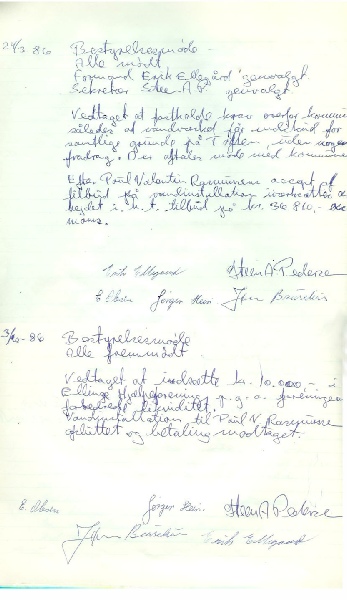 24/3-86 Bestyrelsesmøde -
Alle mødt
Formand Erik Ellegård genvalgt.
Sekretær Steen A. P. genvalgt.
Vedtaget at fastholde krav overfor kommunen
således at vandværket får indskud for
samtlige grunde på Toften, uden nogen
fradrag. Der aftales møde med kommunen
Efter Poul Valentin Rasmussens accept af
tilbud på vandinstallation iværksættes
arbejdet i h.t. tilbud på kr. 36.810,-
moms.
Erik Ellegaard Steen A Pedersen
E Olsen Jørgen
3/ -86 Bestyrelsesmøde
Alle fremmødt
Vedtaget at indsætte kr. 10.000,- i
Ellinge p.g.a. foreningens
forbedrede likviditet.
Vandinstallation til Poul V. Rasmussen
afsluttet og betaling modtaget.
E. Olsen Jørgen Steen A Pedersen
Erik Ellegaard